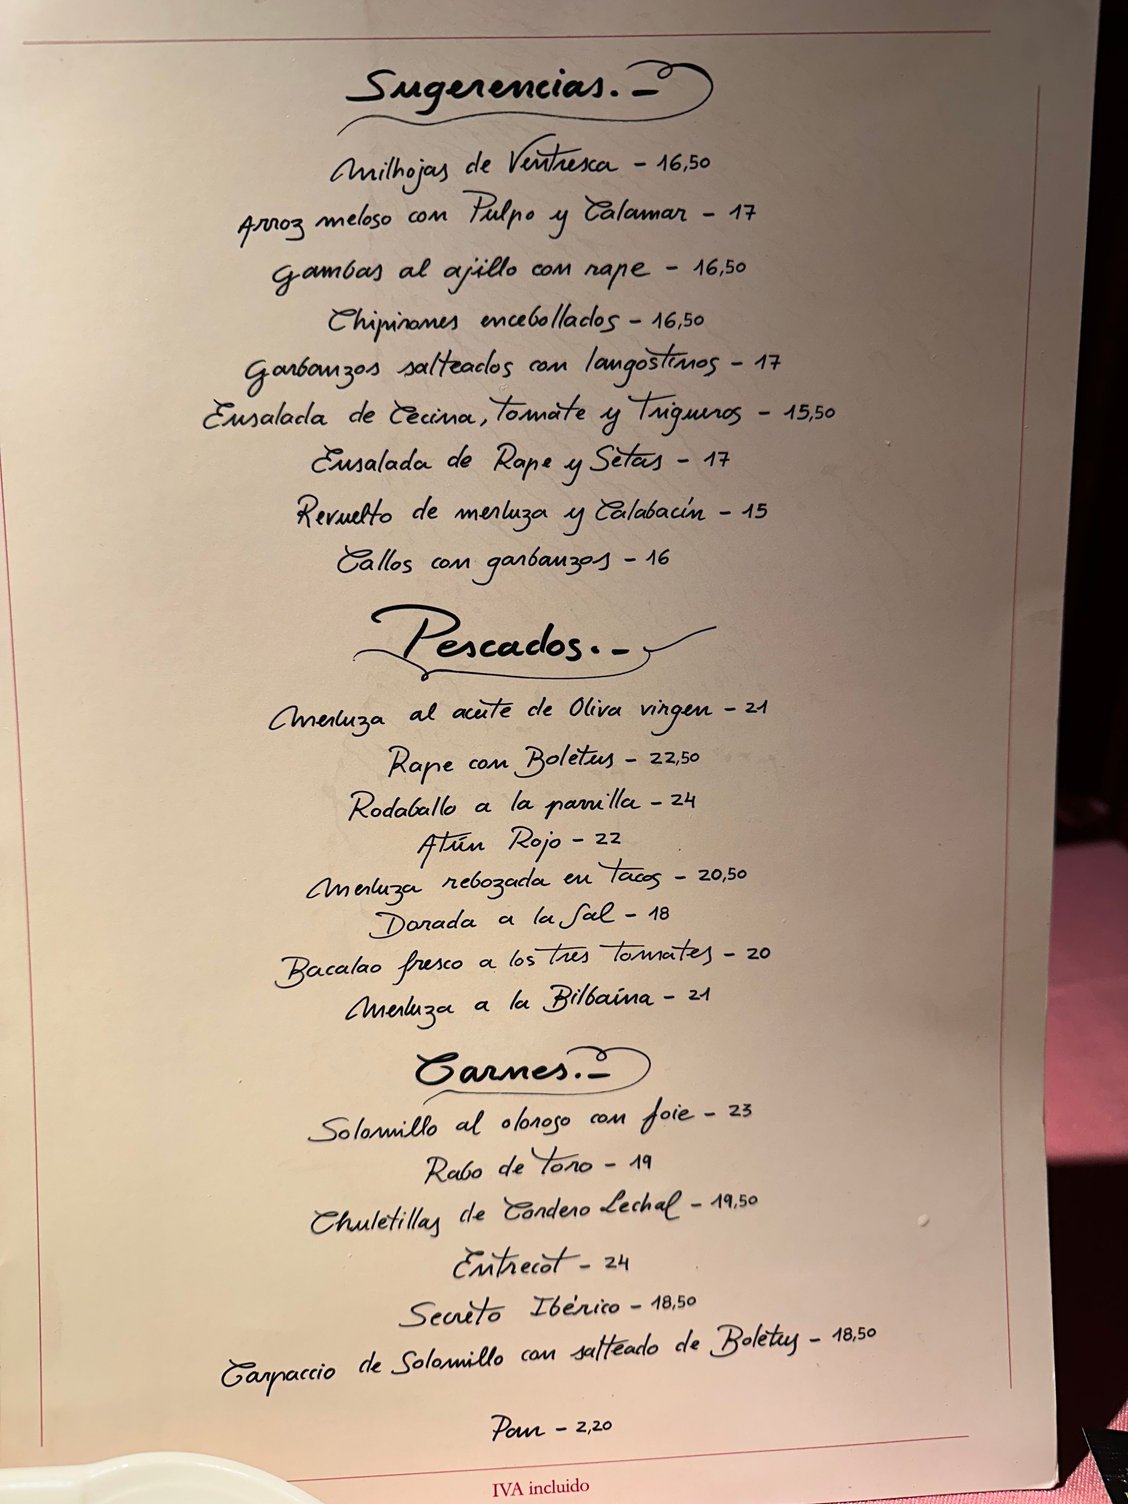 Sugerencias.-
Milhojas de Ventresca - 16,50
Arroz meloso con Pulpo y Calamar - 17
Gambas al ajillo con rape - 16,50
Chipirones encebollados - 16,50
Garbanzos salteados con langostinos - 17
Ensalada de Cecina, Tomate y Trigueros - 15,50
Ensalada de Rape y Setas - 17
Revuelto de merluza y Calabacín - 15
Callos con garbanzos - 16
Pescados.-
Merluza al aceite de Oliva virgen - 21
Rape con Boletus - 22,50
Rodaballo a la parrilla - 24
Atún Rojo - 22
Merluza rebozada en Tacos - 20,50
Dorada a la Sal - 18
Bacalao fresco a los tres tomates - 20
Merluza a la Bilbaína - 21
Carnes.-
Solomillo al oloroso con foie - 23
Rabo de Toro - 19
Chuletillas de Cordero Lechal - 19,50
Entrecot - 24
Secreto Ibérico - 18,50
Carpaccio de Solomillo con salteado de Boletus - 18,50
Pan - 2,20
IVA incluido